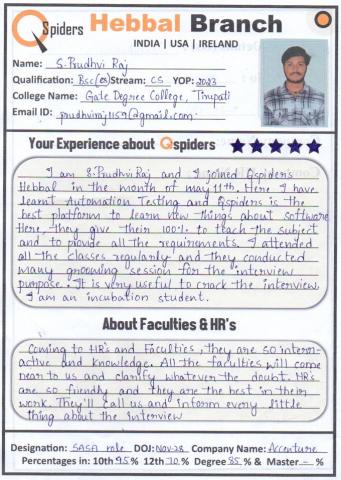 QSpiders Hebbal Branch
INDIA | USA | IRELAND
Name: S. Prudhvi Raj
Qualification: Bsc(cs) Stream: CS YOP: 2023
College Name: Gate Degree College, Tirupati
Email ID: prudhviraj1159@gmail.com
Your Experience about Qspiders
I am S. Prudhvi Raj and I joined Qspiders
Hebbal in the month of may 11th. Here I have
learnt Automation Testing and Qspiders is the
best platform to learn new things about software
Here, they give their 100%. to teach the subject
and to provide all the requirements. I attended
all the classes regularly and they conducted
many grooming session for the interview
purpose. It is very useful to crack the interview.
I am an incubation student.
About Faculties & HR's
Coming to HR's and Faculties, they are so intera-
active and knowledge. All the faculties will come
near to us and clarify whatever the doubt. HR's
are so friendly and they are the best in their
work. They'll call us and inform every little
thing about the interview
Designation: SASA role DOJ: Nov-28 Company Name: Accenture
Percentages in: 10th 95 % 12th 70 % Degree 85 % & Master - %